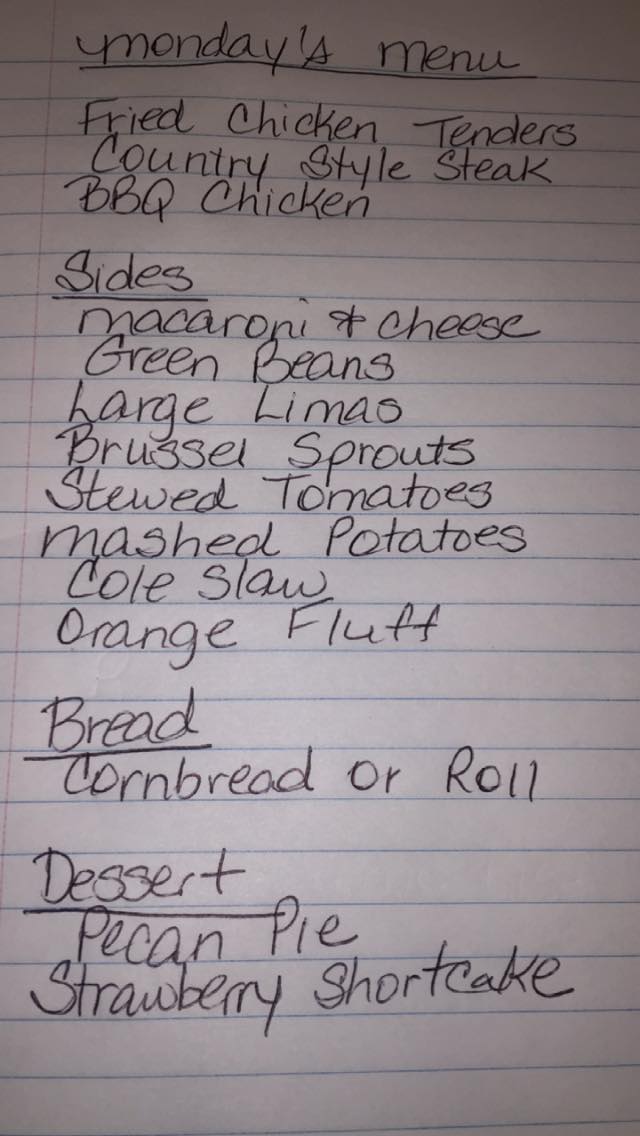 monday's menu
Fried Chicken Tenders
Country Style Steak
BBQ Chicken
Sides
macaroni & cheese
Green Beans
Large Limas
Brussel Sprouts
Stewed Tomatoes
mashed Potatoes
Cole Slaw
Orange Fluff
Bread
Cornbread or Roll
Dessert
Pecan Pie
Strawberry Shortcake